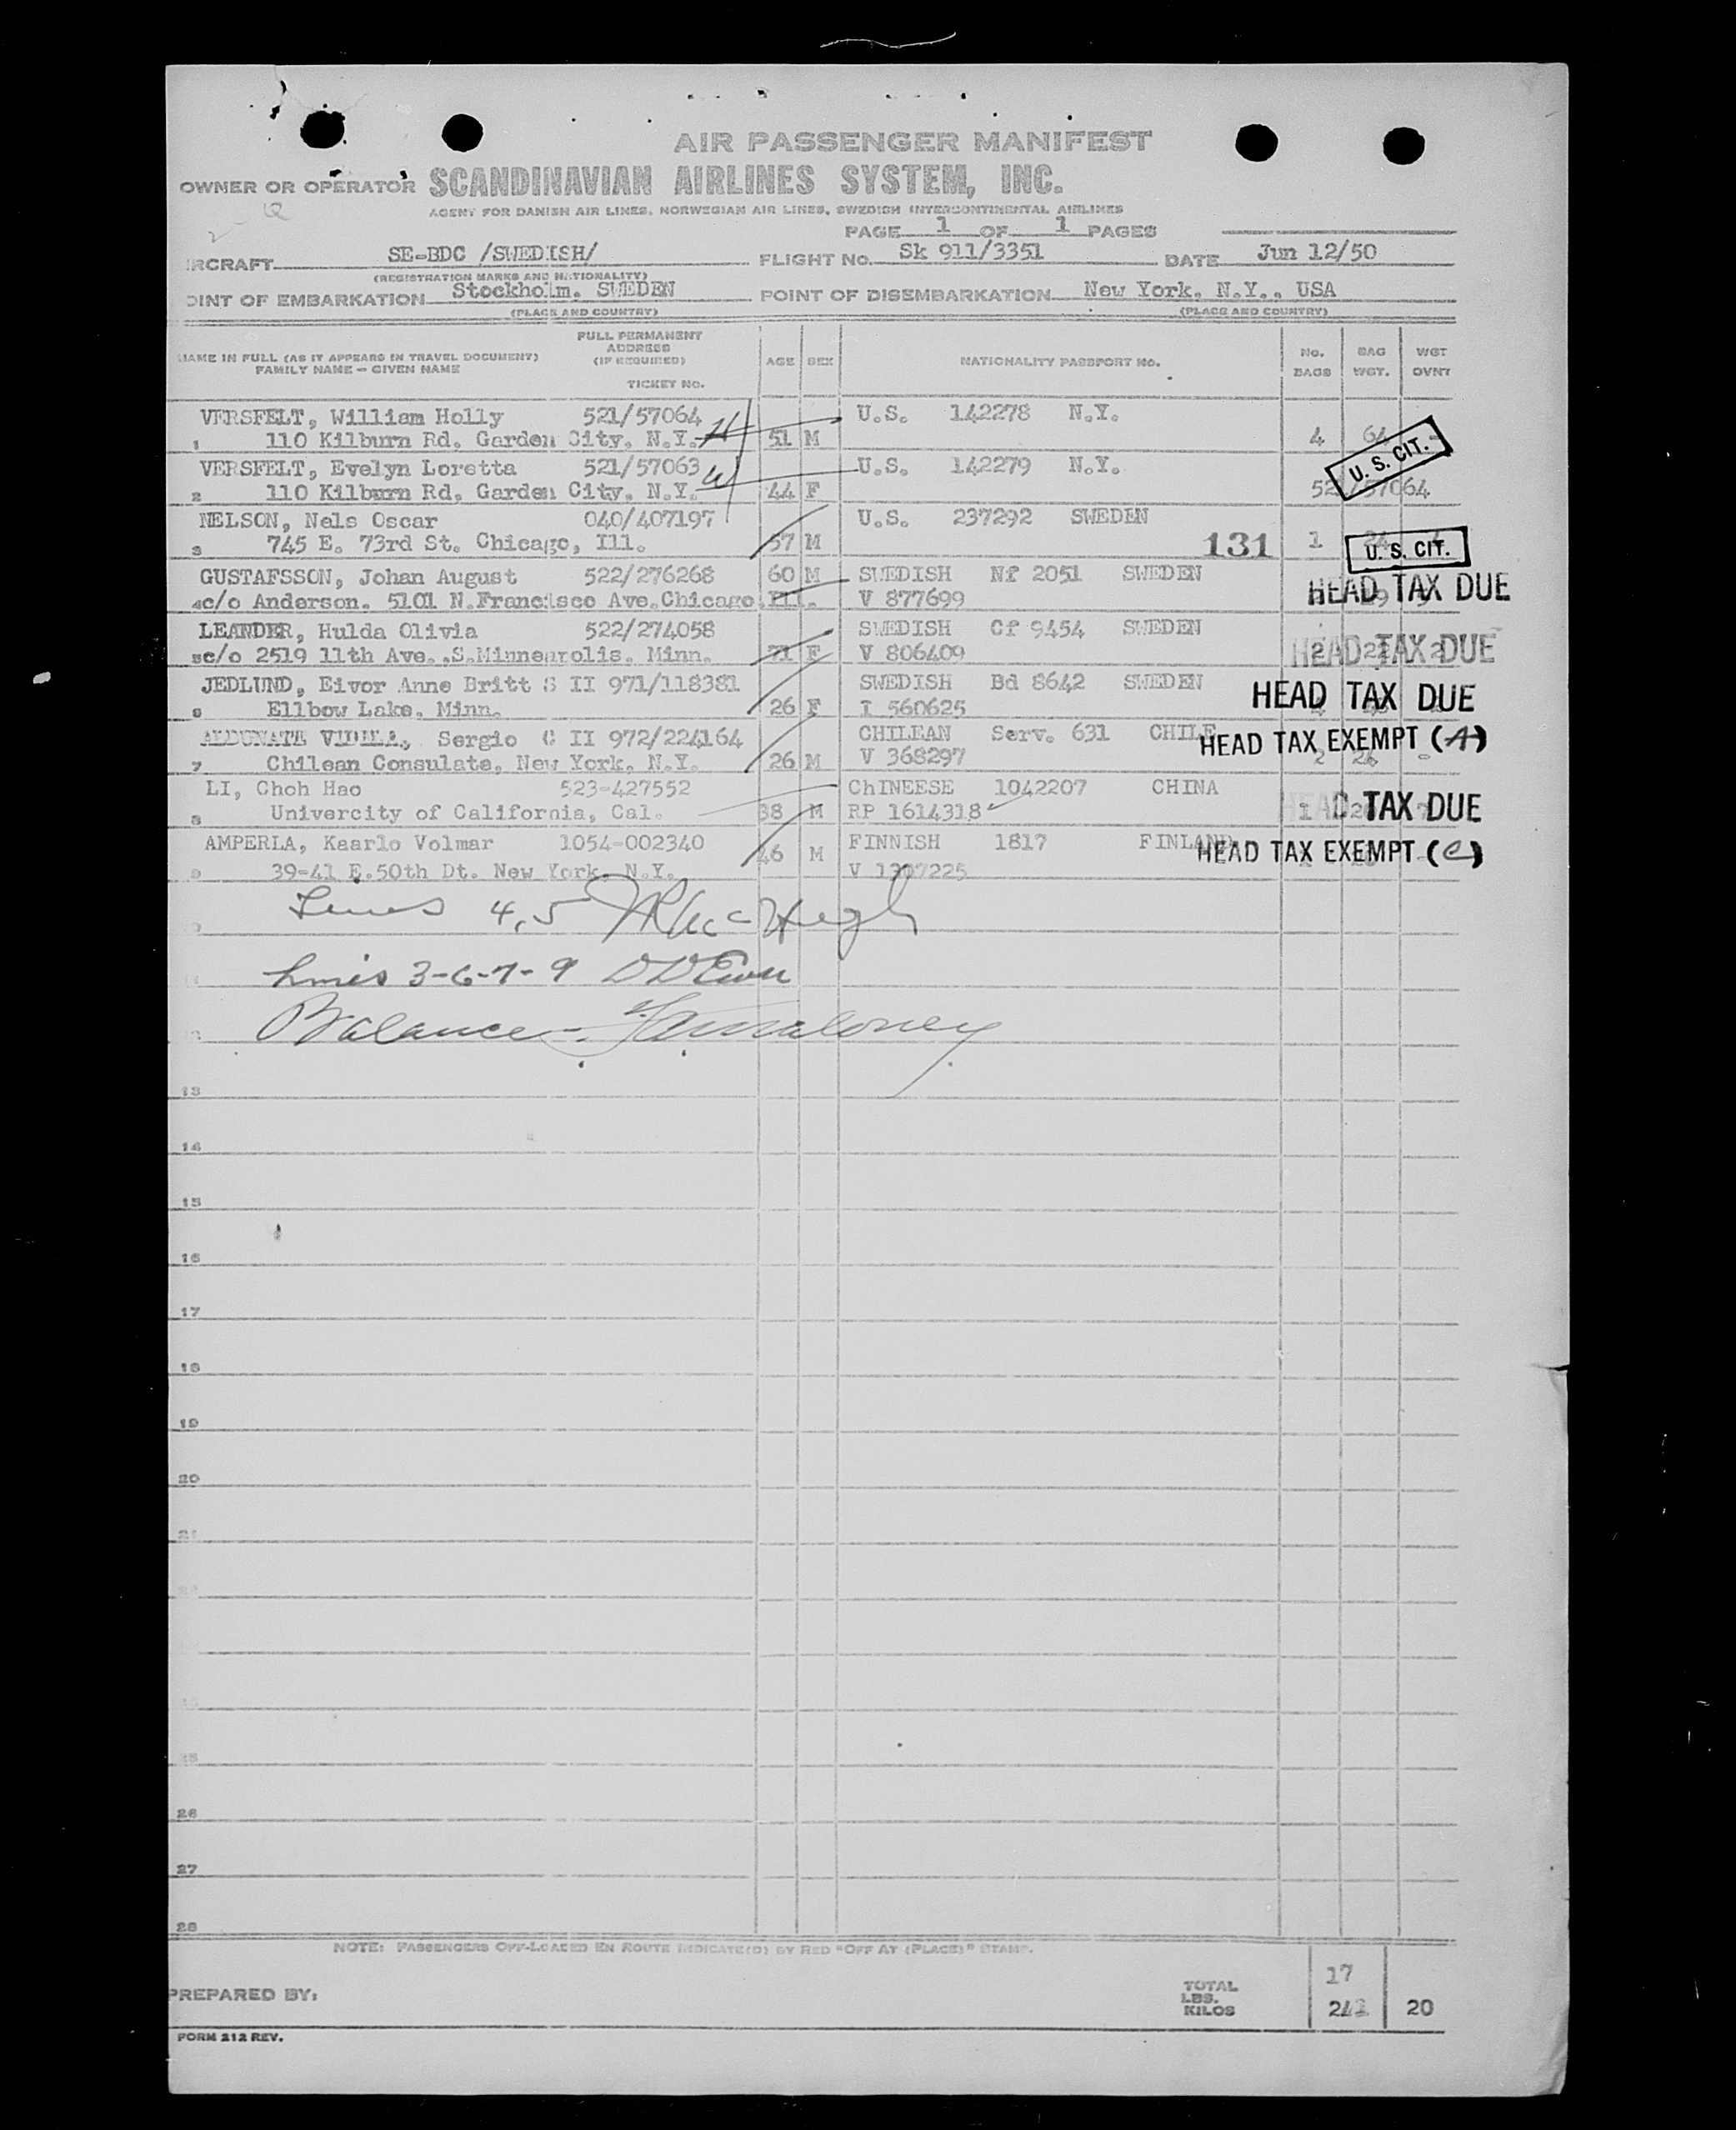 AIR PASSENGER MANIFEST
OWNER OR OPERATOR SCANDINAVIAN AIRLINES SYSTEM, INC.
AGENT FOR DANISH AIR LINES, NORWEGIAN AIR LINES, SWEDISH INTERCONTINENTAL AIRLINES
PAGE 1 OF 1 PAGES
IRCRAFT SE-BDC /SWEDISH/ FLIGHT NO. Sk 911/3351 DATE Jun 12/50
(REGISTRATION MARKS AND NATIONALITY)
OINT OF EMBARKATION Stockholm. SWEDEN POINT OF DISEMBARKATION New York, N.Y., USA
(PLACE AND COUNTRY) (PLACE AND COUNTRY)
NAME IN FULL (AS IT APPEARS IN TRAVEL DOCUMENT) FAMILY NAME - GIVEN NAME
FULL PERMANENT ADDRESS (IF REQUIRED) TICKET NO.
AGE SEX NATIONALITY PASSPORT NO. NO. BAGS BAG WGT. WGT OVNT
VERSFELT, William Holly 521/57064 U.S. 142278 N.Y.
1 110 Kilburn Rd. Garden City. N.Y. H 51 M 4 64
VERSFELT, Evelyn Loretta 521/57063 U.S. 142279 N.Y. U. S. CIT.
2 110 Kilburn Rd, Garden City, N.Y. W 44 F 521/57064
NELSON, Nels Oscar 040/407197 U.S. 237292 SWEDEN
3 745 E. 73rd St. Chicago, Ill. 57 M 131 1 U. S. CIT.
GUSTAFSSON, Johan August 522/276268 60 M SWEDISH Nf 2051 SWEDEN HEAD TAX DUE
4 c/o Anderson. 5101 N.Francisco Ave.Chicago Ill. V 877699
LEANDER, Hulda Olivia 522/274058 SWEDISH Cf 9454 SWEDEN
5 c/o 2519 11th Ave..S.Minneapolis. Minn. 71 F V 806409 HEAD TAX DUE
JEDLUND, Eivor Anne Britt S II 971/118381 SWEDISH Bd 8642 SWEDEN HEAD TAX DUE
6 Ellbow Lake. Minn. 26 F I 560625
ALDUNATE VIDELA, Sergio C II 972/224164 CHILEAN Serv. 631 CHILE HEAD TAX EXEMPT (A)
7 Chilean Consulate, New York. N.Y. 26 M V 368297 2 26 -
LI, Choh Hao 523-427552 ChINEESE 1042207 CHINA
8 Univercity of California, Cal. 38 M RP 1614318 1 HEAD TAX DUE
AMPERLA, Kaarlo Volmar 1054-002340 46 M FINNISH 1817 FINLAND HEAD TAX EXEMPT (C)
9 39-41 E.50th Dt. New York. N.Y. V 1307225
Lines 4,5
Lines 3-6-7-9
Balance -
13
14
15
16
17
18
19
20
21
26
27
28
NOTE: PASSENGERS OFF-LOADED EN ROUTE INDICATE(D) BY RED "OFF AT (PLACE)" STAMP.
PREPARED BY:
TOTAL 17
LBS.
KILOS 20
FORM 212 REV.